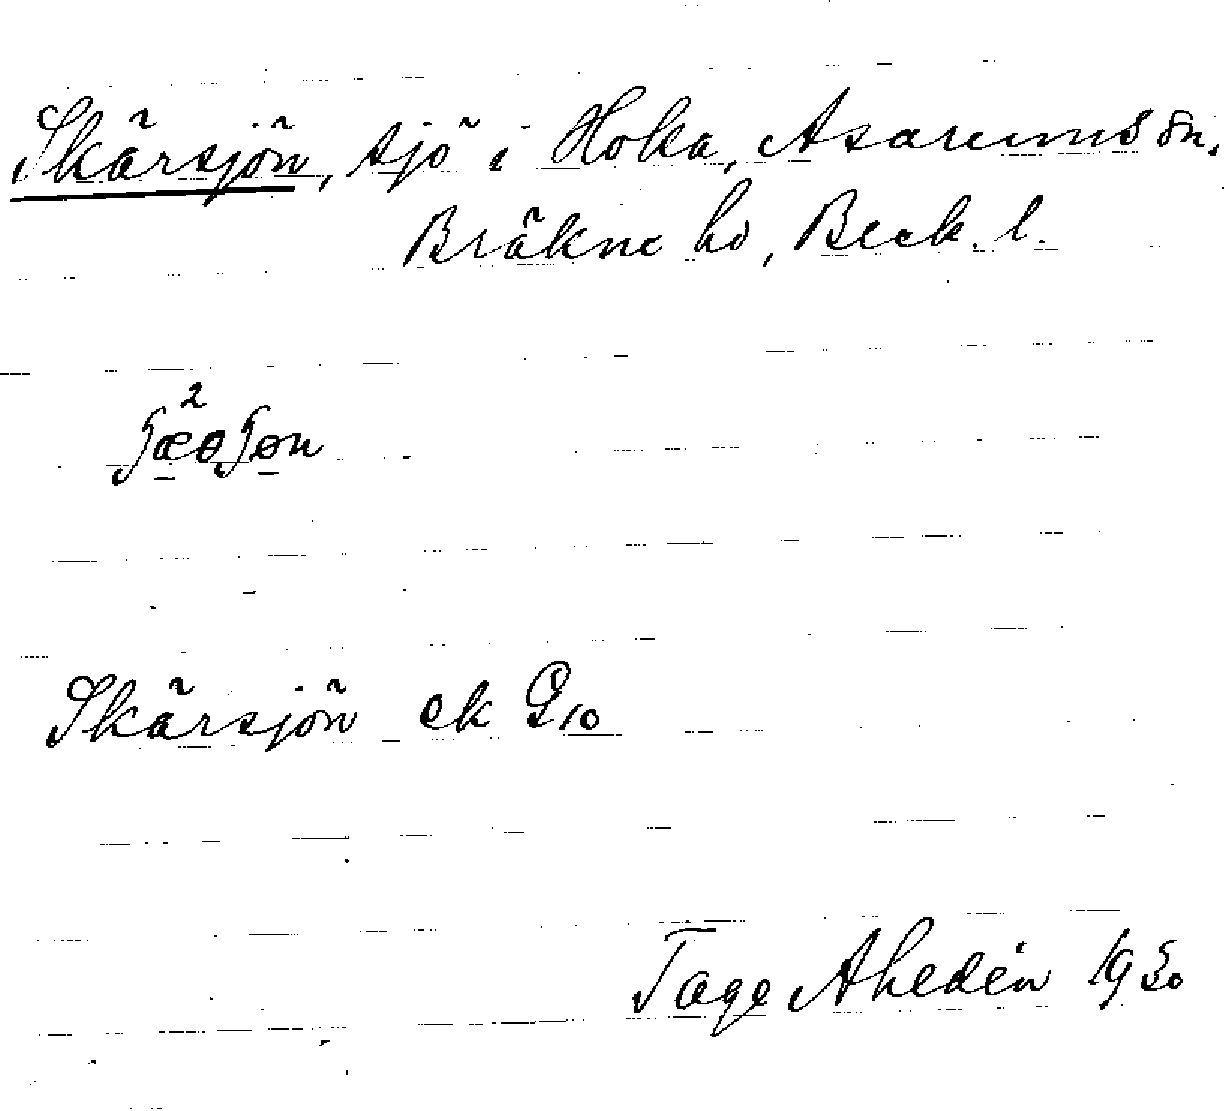 Skärsjön, sjö i Hoka, Asarums sn,
Bräkne hd, Bleck. l.
Skärsjön ek G10
Tage Ahldén 1930